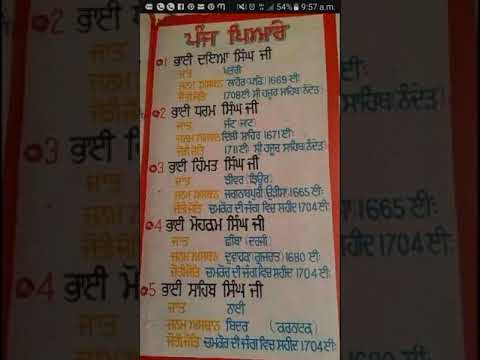 54% 9:57 a.m.
ਪੰਜ ਪਿਆਰੇ
1 ਭਾਈ ਦਇਆ ਸਿੰਘ ਜੀ
ਜਾਤ ਖਤਰੀ
ਜਨਮ ਅਸਥਾਨ ਲਾਹੌਰ (ਪਾਕਿ:) 1669 ਈ:
ਜੋਤੀ ਜੋਤਿ 1708 ਈ: ਸ੍ਰੀ ਹਜ਼ੂਰ ਸਾਹਿਬ (ਨੰਦੇੜ)
2 ਭਾਈ ਧਰਮ ਸਿੰਘ ਜੀ
ਜਾਤ ਜੱਟ (ਜਾਟ)
ਜਨਮ ਅਸਥਾਨ ਦਿੱਲੀ ਸ਼ਹਿਰ 1671 ਈ:
ਜੋਤੀ ਜੋਤਿ 1711 ਈ: ਸ੍ਰੀ ਹਜ਼ੂਰ ਸਾਹਿਬ (ਨੰਦੇੜ)
3 ਭਾਈ ਹਿੰਮਤ ਸਿੰਘ ਜੀ
ਜਾਤ ਝੀਵਰ (ਝਿਊਰ)
ਜਨਮ ਅਸਥਾਨ ਜਗਨਨਾਥਪੁਰੀ ਉੜੀਸਾ 1665 ਈ:
ਜੋਤੀ ਜੋਤਿ ਚਮਕੌਰ ਦੀ ਜੰਗ ਵਿਚ ਸ਼ਹੀਦ 1704 ਈ:
4 ਭਾਈ ਮੋਹਕਮ ਸਿੰਘ ਜੀ
ਜਾਤ ਛੀਂਬਾ (ਦਰਜੀ)
ਜਨਮ ਅਸਥਾਨ ਦੁਵਾਰਕਾ (ਗੁਜਰਾਤ) 1680 ਈ:
ਜੋਤੀ ਜੋਤਿ ਚਮਕੌਰ ਦੀ ਜੰਗ ਵਿਚ ਸ਼ਹੀਦ 1704 ਈ:
5 ਭਾਈ ਸਾਹਿਬ ਸਿੰਘ ਜੀ
ਜਾਤ ਨਾਈ
ਜਨਮ ਅਸਥਾਨ ਬਿਦਰ (ਕਰਨਾਟਕ)
ਜੋਤੀ ਜੋਤਿ ਚਮਕੌਰ ਦੀ ਜੰਗ ਵਿਚ ਸ਼ਹੀਦ 1704 ਈ: